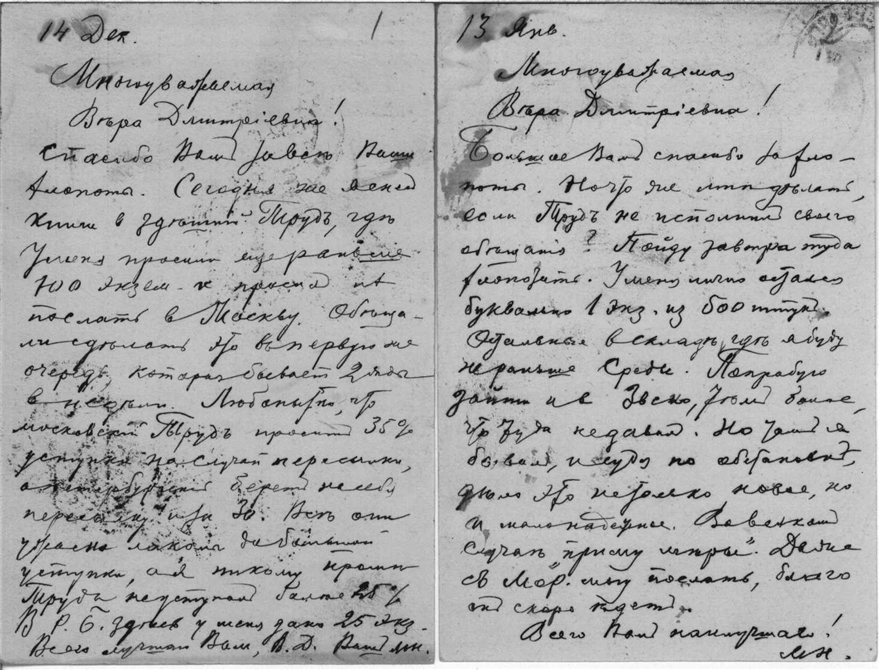 14 Дек.
1
Многоуважаемая
Вѣра Дмитріевна!
Спасибо Вамъ за всѣ Ваши
хлопоты. Сегодня же
книги в здѣшній Трудъ, гдѣ
У меня просили еще раньше
100 экзем. и просилъ их
послать в Москву. Обѣща-
ли сдѣлать это въ первую же
очередь, которая бываетъ 2 раза
в недѣлю. Любопытно, что
московскій Трудъ проситъ 35%
уступки на случай пересылки,
а петербургскій беретъ на себя
пересылку и за 30. Всѣ они
ужасно лакомы до большой
уступки, а я никому кромѣ
Труда не уступалъ болѣе 25%
В Р. Б. здѣсь у меня дано 25 экз.
Всего лучшаго Вам, В. Д. Ваш МН.
13 Янв.
Многоуважаемая
Вѣра Дмитріевна!
Большое Вамъ спасибо за хло-
поты. Но что же мнѣ дѣлать,
если Трудъ не исполнилъ своего
обѣщанія? Пойду завтра туда
хлопотать. У меня лично осталось
буквально 1 экз. из 500 штукъ.
Остальные в складѣ, гдѣ я буду
не раньше Среды. Попробую
зайти и в Звено, тѣмъ болѣе,
что туда недавал. Но тамъ я
бывалъ, и судя по обстановкѣ,
дѣло это не только новое, но
и малонадежное. Во всякомъ
случаѣ "приму мѣры". Далѣе
съ М. могу послать, благо
онъ скоро ѣдетъ.
Всего Вамъ наилучшаго!
МН.